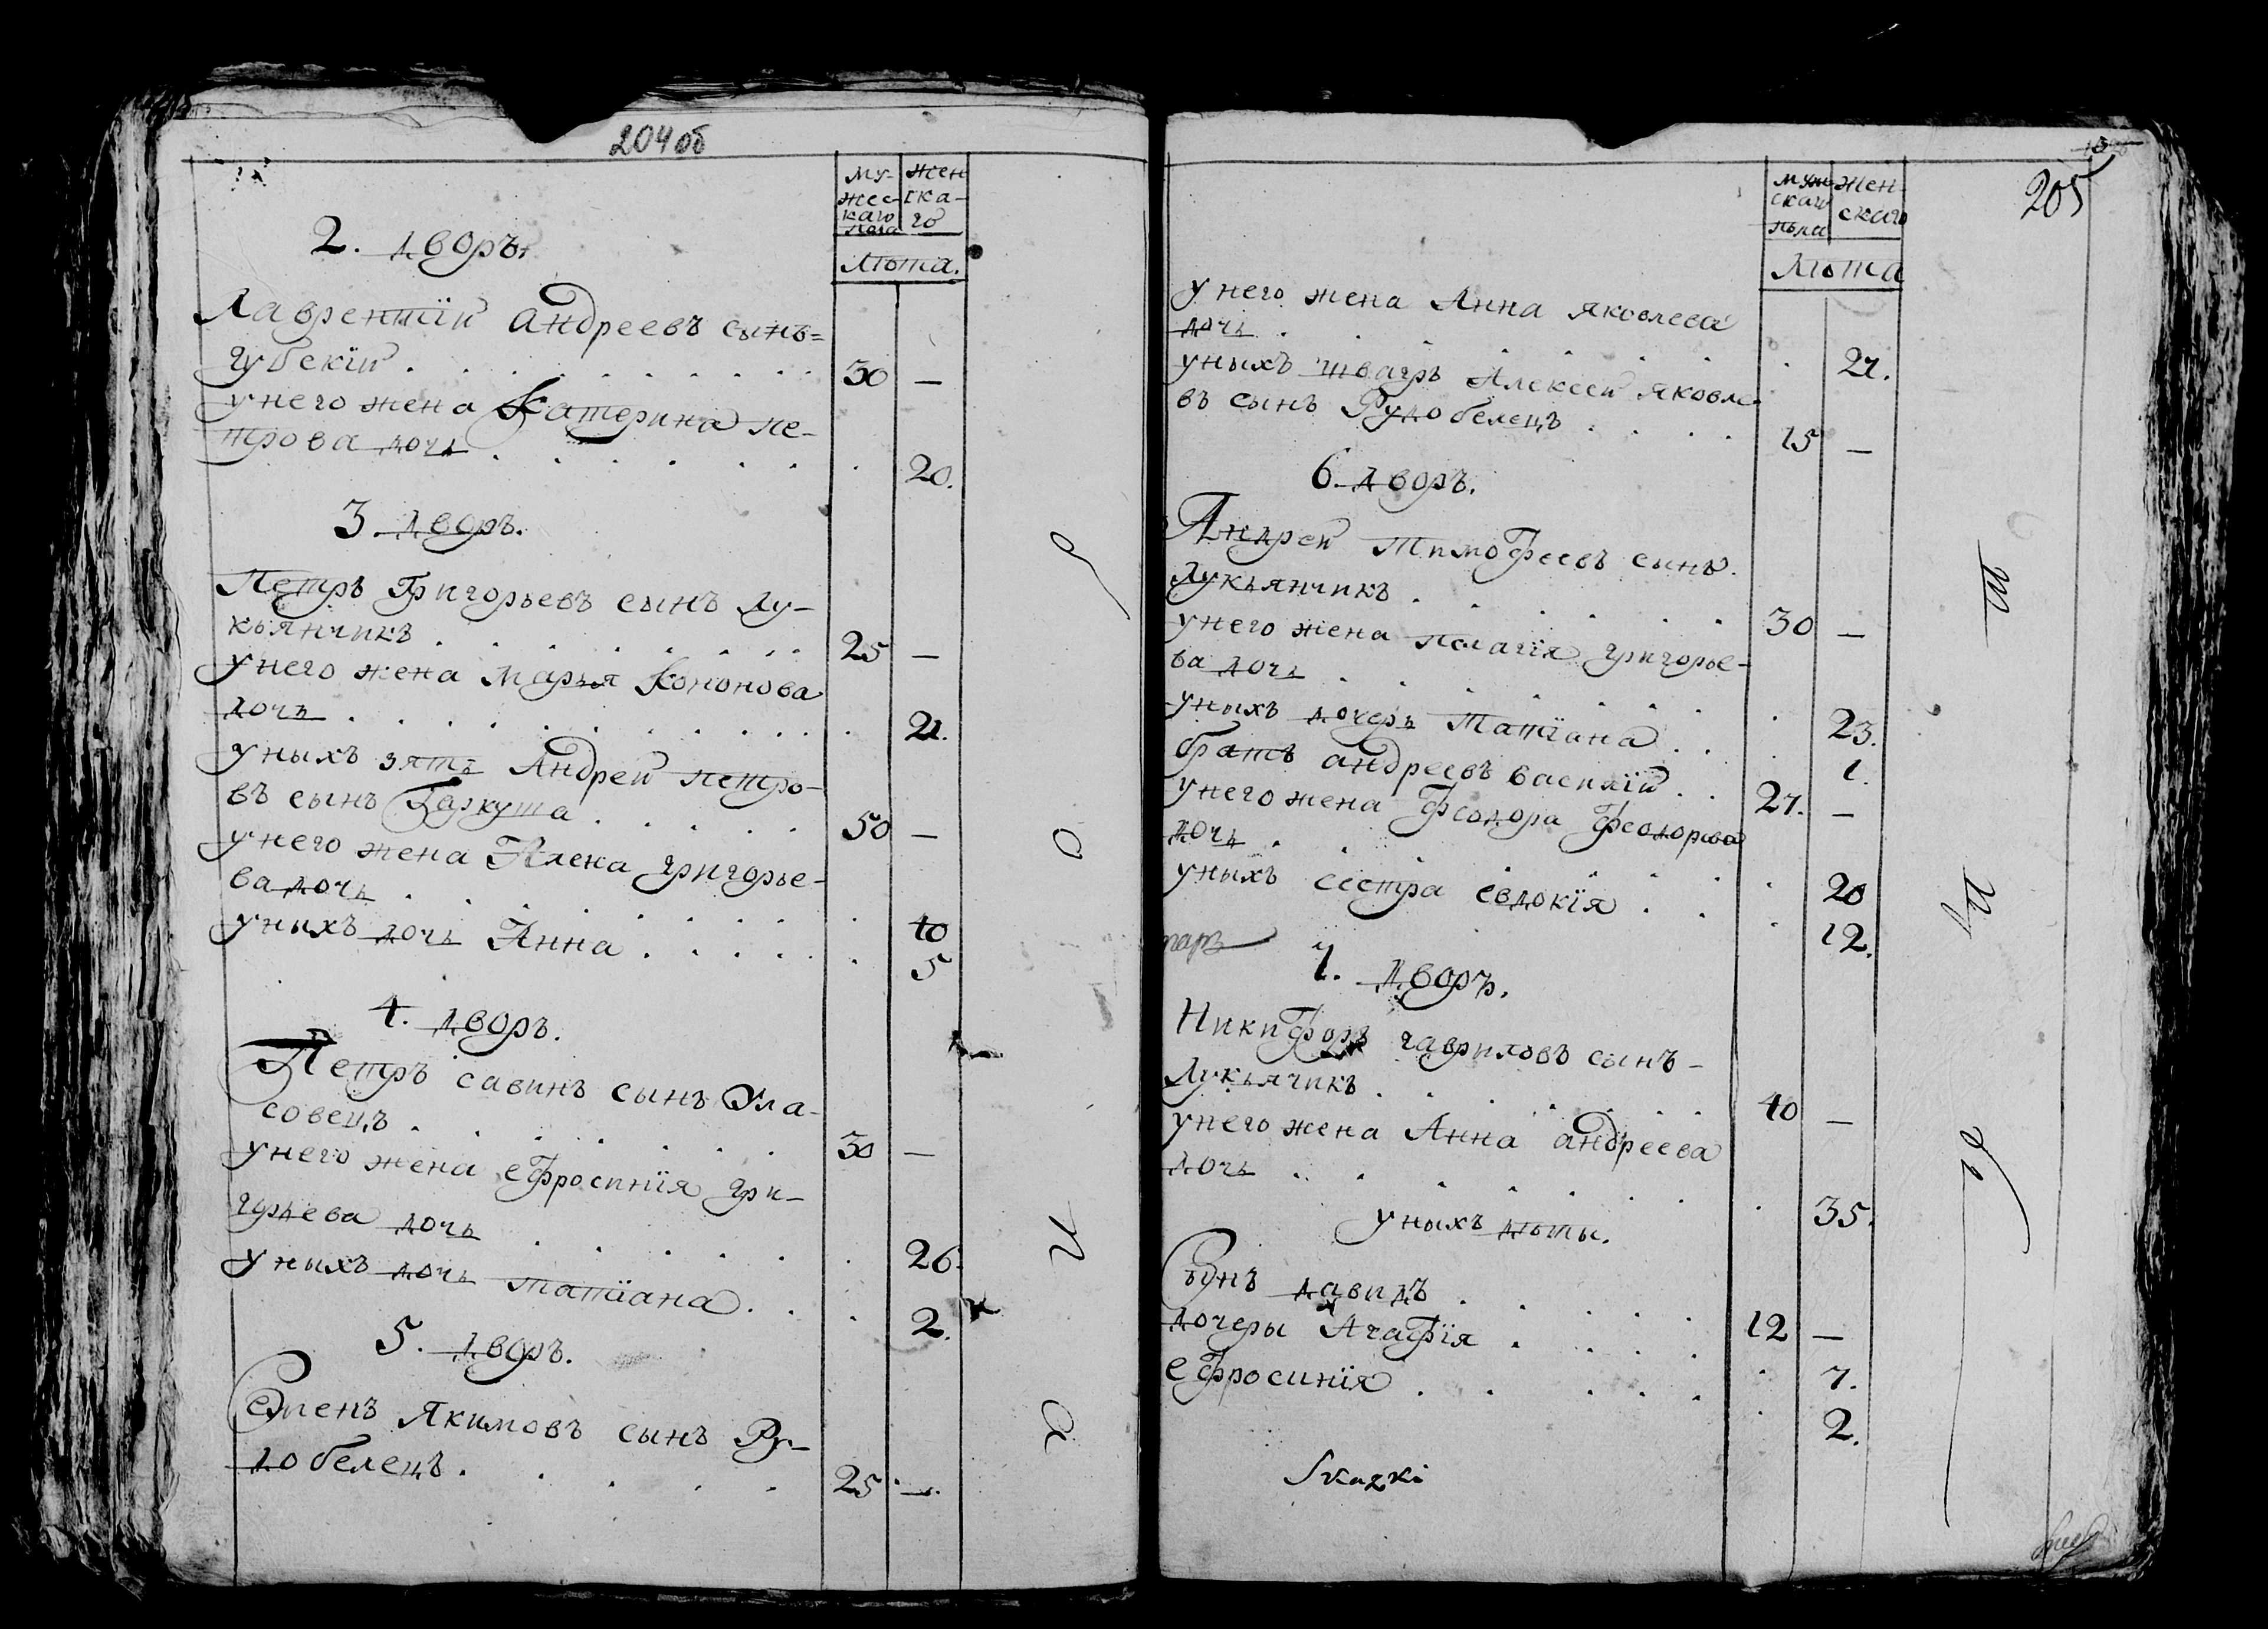 204об
му- жен
жес- ска-
каго го
пола
Лѣта.
2. дворъ.
Лаврентїй Андреевъ сынъ=
губскїй . . . 30 —
у него жена Катерина пе-
трова дочь . . . 20.
3. дворъ.
Петръ Григорьевъ сынъ Лу-
кьянчикъ . . . 25 —
у него жена Марья Кононова
дочь . . . 21.
у ныхъ зять Андрей петро-
въ сынъ Гаркуша . . . 50 —
у него жена Алена григорье-
ва дочь . . . 40
у нихъ дочь Анна . . . 5
4. дворъ.
Петръ савинъ сынъ Ула-
совецъ . . . 30 —
у него жена ефросинїя гри-
горьева дочь . . . 26.
у ныхъ дочь татїана . . . 2.
5. дворъ.
Семенъ Якимовъ сынъ Ру-
добелецъ . . . 25 —.
205
муж- жен-
скаго скаго
пола
Лѣта
у него жена Анна яковлева
дочь . . . 27.
у ныхъ швагръ Алексей яковле
въ сынъ Рудобелецъ . . . 15 —
6. дворъ.
Андрей Тимофеевъ сынъ
Лукьянчикъ . . . 30 —
у него жена пелагїя григорье-
ва дочь . . . 23.
у ныхъ дочерь Татїана . . . 1.
братъ андреевъ василїй . . 27. —
у него жена Феодора Феодорова
дочь . . . 20
у ныхъ сестра евдокїя . . . 12.
7. дворъ.
Никифоръ гавриловъ сынъ-
Лукьячикъ . . . 40 —
у него жена Анна андреева
дочь . . . 35.
у ныхъ дѣты.
Сынъ давидъ . . . 12 —
дочеры Агафїя . . . 7.
ефросинїя . . . 2.
Skazki